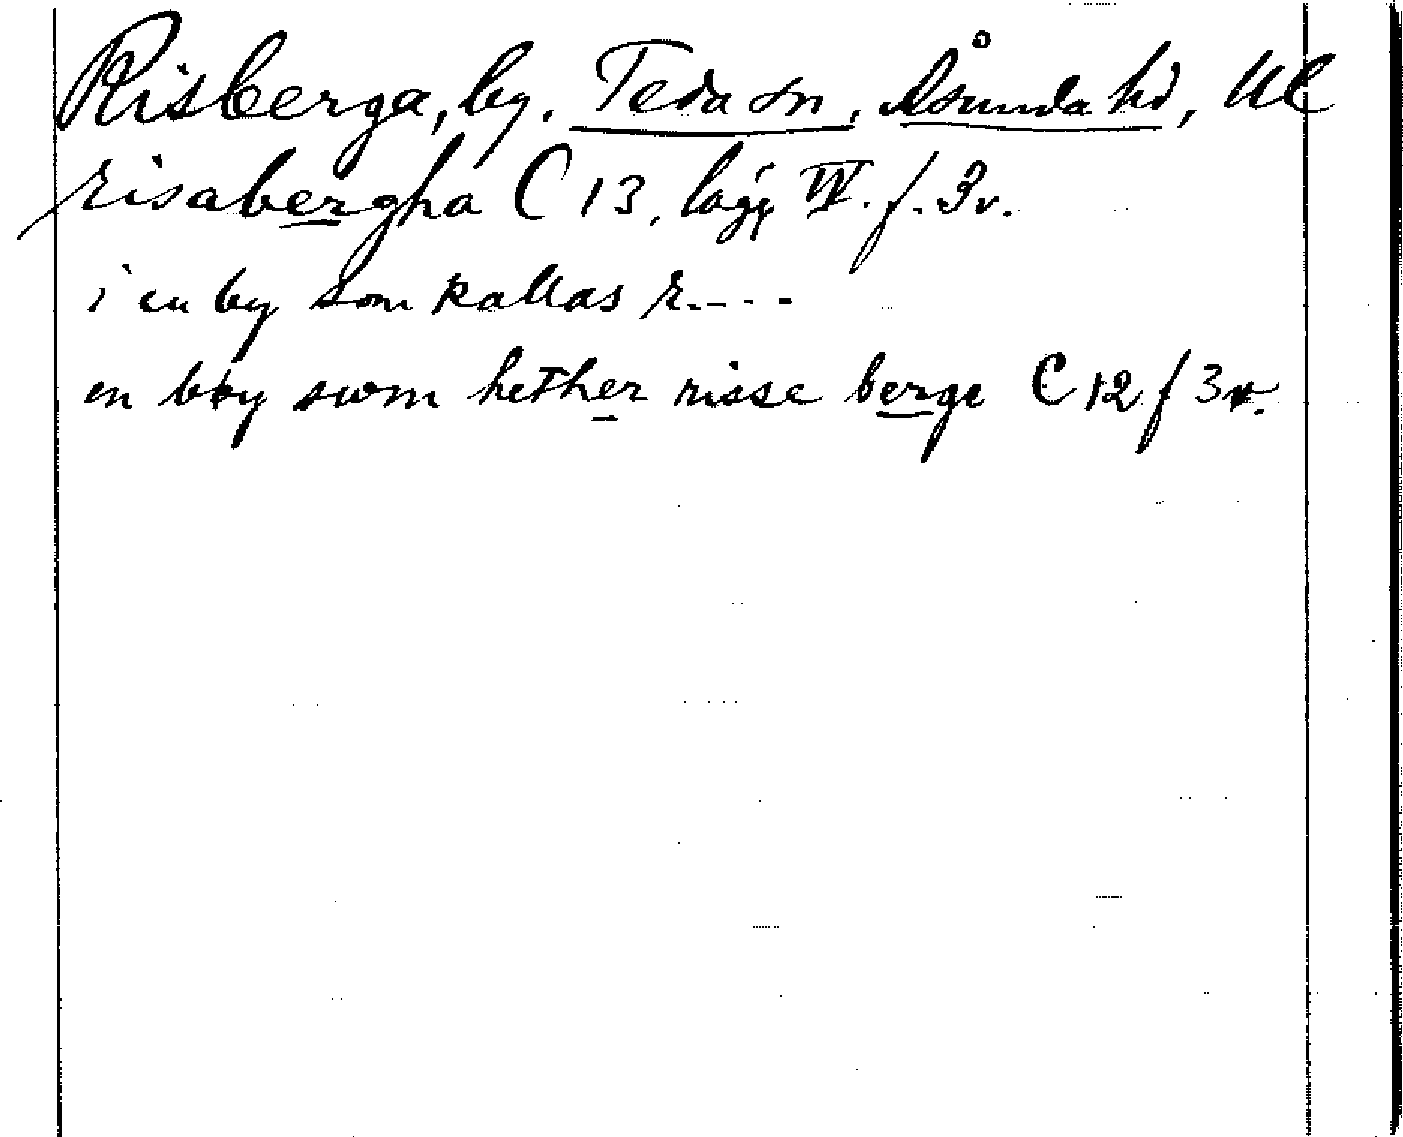 Risberga, by. Teda sn, Åsunda hd, Ul
risabergha C 13, lägg IV. f. 3v.
i en by som kallas r.----
en by swom hether risse berge C 12 f 3v.